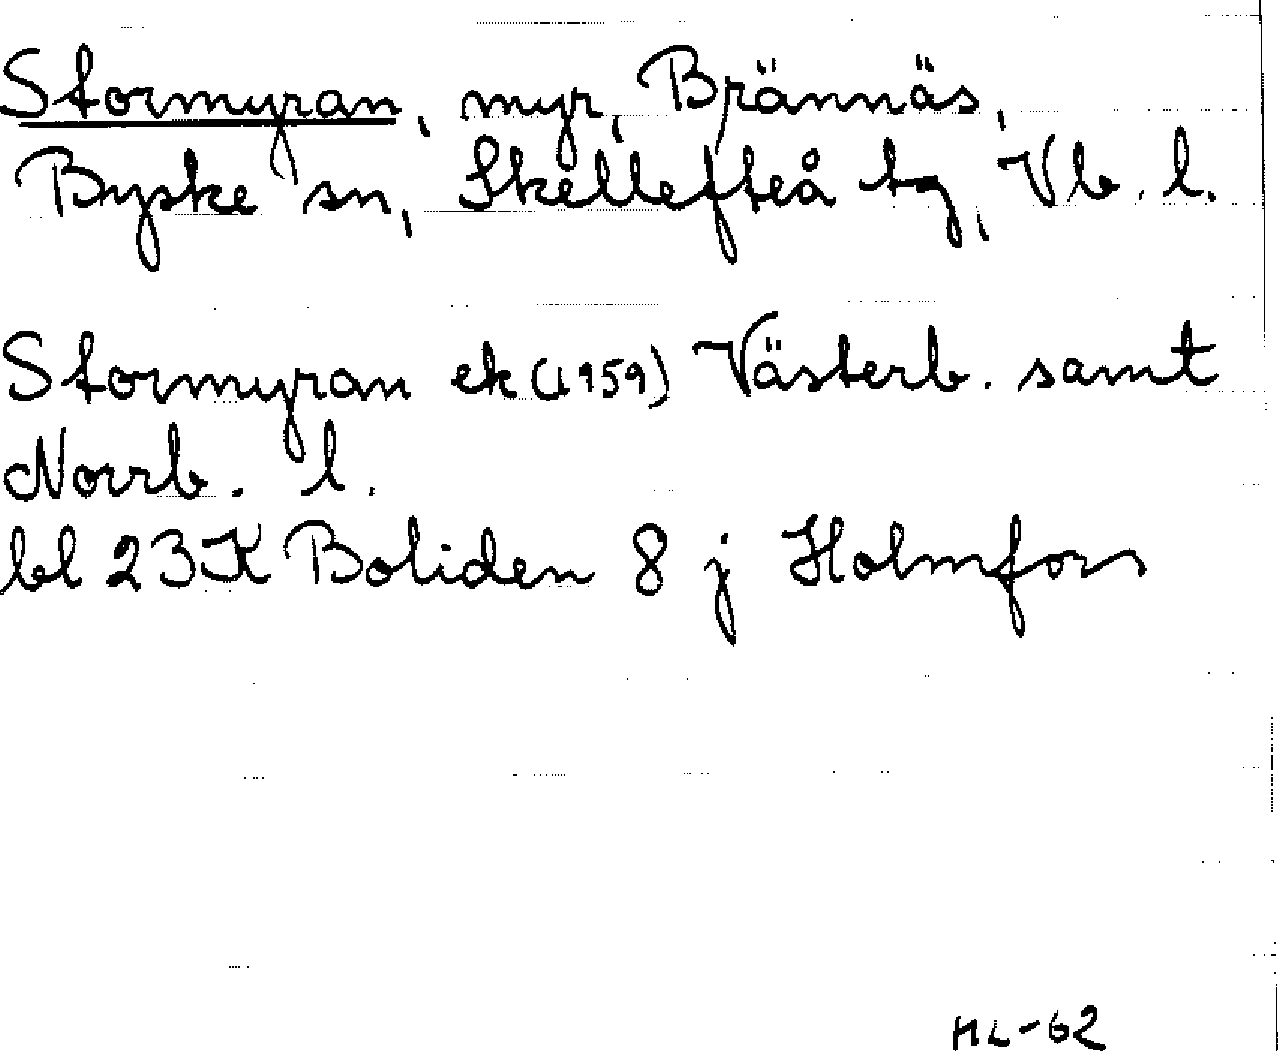 Stormyran, myr, Brännäs,
Byske sn, Skellefteå tg, Vb. l.
Stormyran ek (1959) Västerb. samt
Norrb. l.
bl 23K Boliden 8 j Holmfors
HL-62